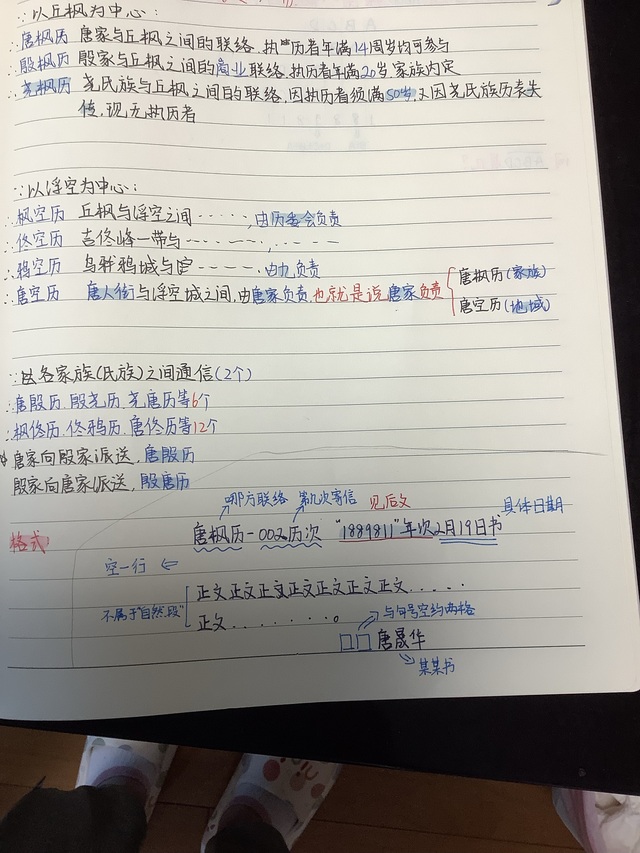 ∵以丘枫为中心：
∴唐枫历 唐家与丘枫之间的联络，执历者年满14周岁均可参与
∴殷枫历 殷家与丘枫之间的商业联络，执历者年满20岁，家族内定
∴尧枫历 尧民族与丘枫之间的联络，因执历者须满50岁，又因尧民族历表失
传，现无执历者
∵以浮空为中心：
∴枫空历 丘枫与浮空之间·····，由历委会负责
∴佟空历 吉佟峰一带与
∴鸦空历 乌鲜鸦城与 ，由九负责
∴唐空历 唐人街与浮空城之间，由唐家负责，也就是说唐家负责
唐枫历（家族）
唐空历（地域）
∵以各家族（民族）之间通信（2个）
∴唐殷历、殷尧历、尧唐历等6个
∴枫佟历、佟鸦历、唐佟历等12个
唐家向殷家派送，唐殷历
殷家向唐家派送，殷唐历
哪方联络 第几次寄信 见后文 具体日期
格式
唐枫历-002历次 "1889811"年次2月19日书
空一行
不属于"自然段"
正文正文正文正文正文正文正文·····
正文·······。
与句号空约两格
□□唐晟华
某某书